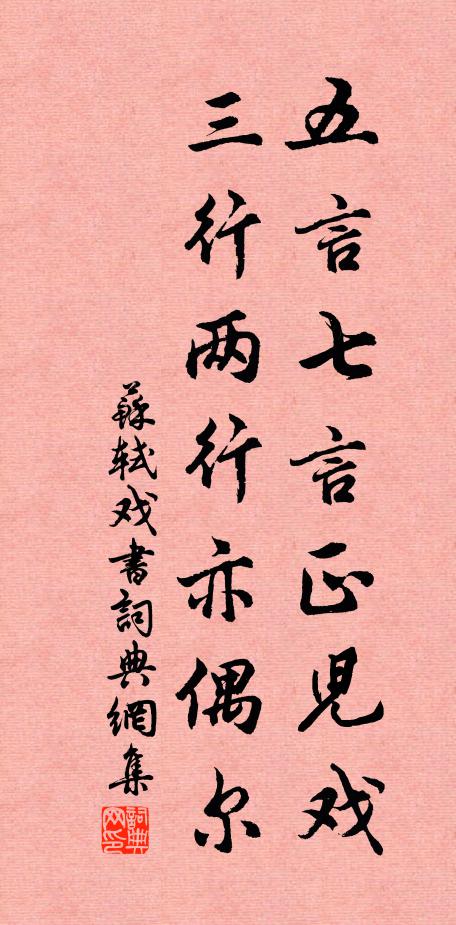 五言七言正児戏
三行两行亦偶尔
蘇軾戏書詞典網集
詞典网印